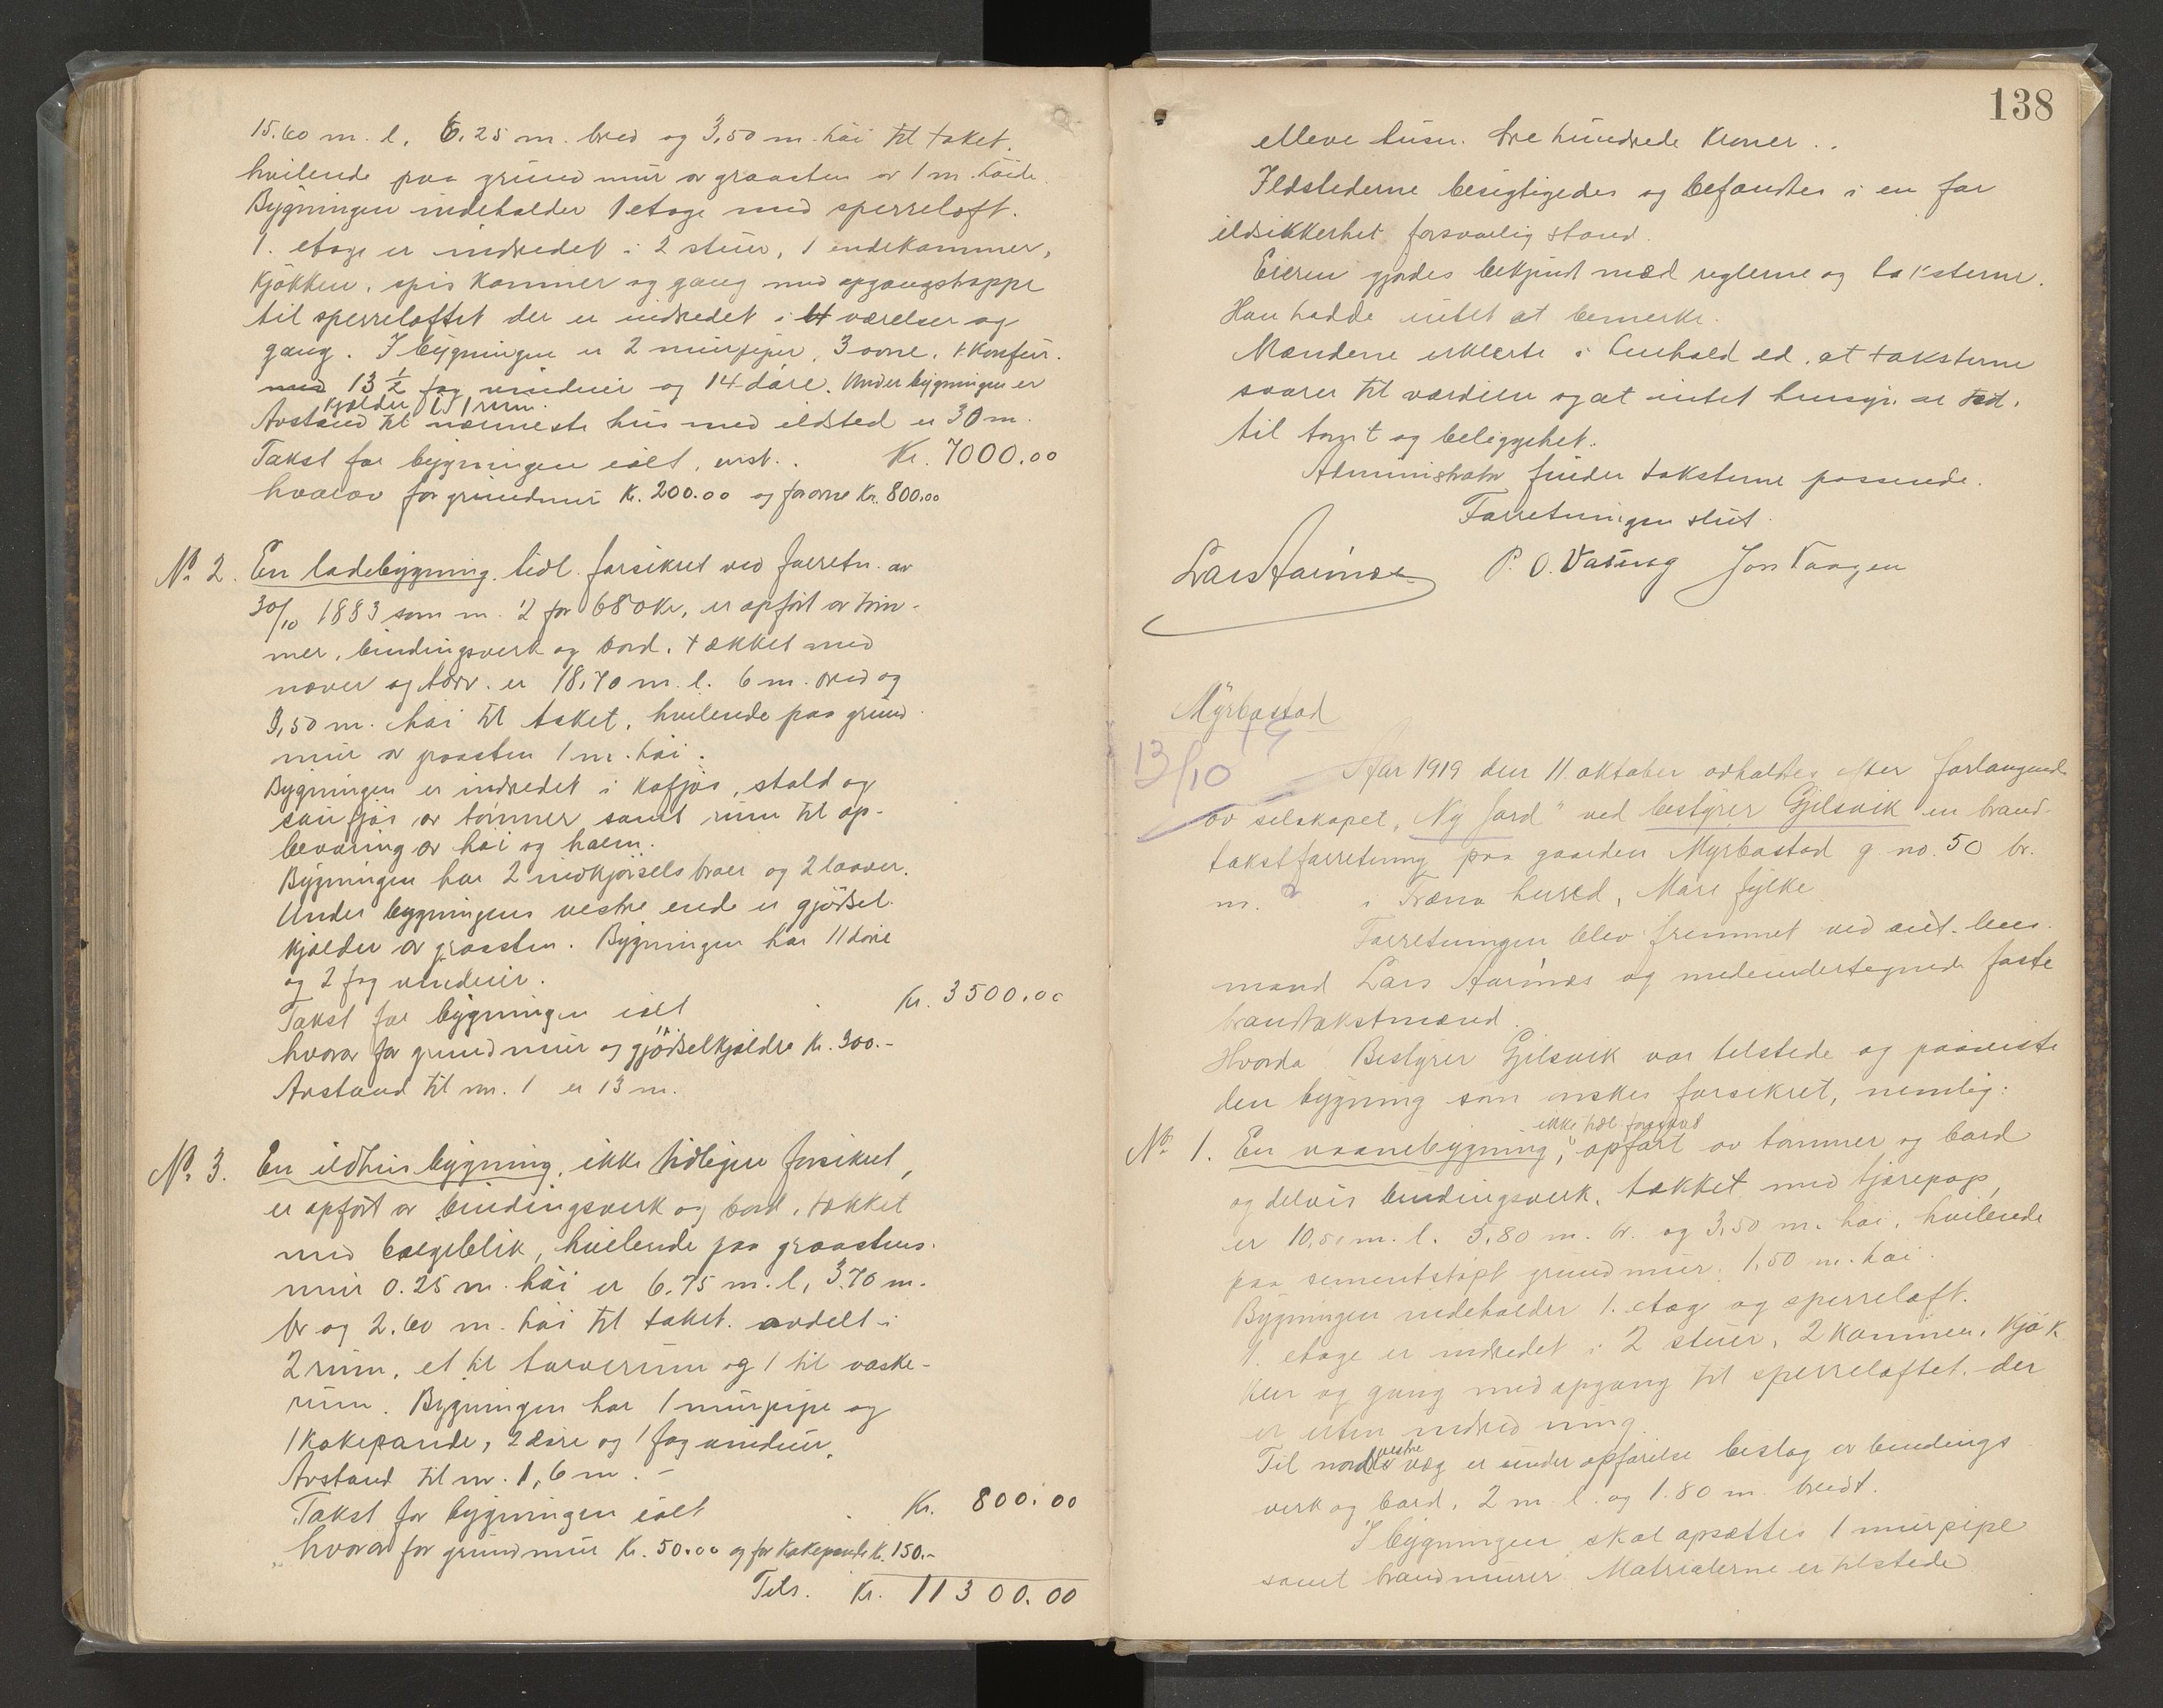 15.60 m. l. 6.25 m. bred og 3,50 m. höi til taket.
hvilende paa grundmur av graasten av 1 m. höide.
Bygningen indeholder 1 etage med sperreloft.
1. etage er indredet i 2 stuer, 1 endekammer,
kjökken, spiskammer og gang med opgangstrappe
til sperreloftet der er indredet i 4 værelser og
gang. I bygningen er 2 murpiper, 3 ovne, 1 komfur.
med 13 1/2 fag vinduer og 14 döre. Under bygningen er
kjelder til 1 rum.
Avstand til nærmeste hus med ildsted er 30 m.
Takst for bygningen ialt, Kr. 7000.00
hvorav for grundmur Kr. 200.00 og for ovne Kr. 800.00
No. 2. En ladebygning, tidl. forsikret ved forretn. av
30/10 1883 som nr. 2 for 680 kr, er opfört av töm-
mer, bindingsverk og bord, tækket med
næver og törv. er 18,70 m. l. 6 m. bred og
3,50 m. höi til taket, hvilende paa grund
mur av graasten 1 m. höi.
Bygningen er indredet i kofjös, stald og
saufjös av tömmer samt rum til op-
bevaring av höi og halm.
Bygningen har 2 indkjörselsbroer og 2 laaver.
Under bygningens vestre ende er gjödsel-
kjælder av graasten. Bygningen har 11 döre
og 2 fag vinduer.
Takst for bygningen ialt Kr. 3500.00
hvorav for grundmur og gjödselkjeldre Kr. 300.-
Avstand til nr. 1 er 13 m.
No. 3. En ildhusbygning, ikke tidligere forsikret,
er opfört av bindingsverk og bord, tækket
med bølgeblik, hvilende paa graastens-
mur 0.25 m. höi er 6.75 m. l, 3.70 m.
br og 2.60 m. höi til taket. avdelt i
2 rum, et til torverum og 1 til vaske-
rum. Bygningen har 1 murpipe og
1 kokepande, 2 döre og 1 fag vinduer.
Avstand til nr. 1, 6 m. -
Takst for bygningen ialt Kr. 800.00
hvorav for grundmur Kr. 50.00 og for kokepande Kr. 150.-
Tils. Kr. 11300.00
138
elleve tusen tre hundrede Kroner..
Ildstederne besigtigedes og befandtes i en for
ildsikkerhet forsvarlig stand.
Eieren gjordes bekjendt med reglerne og taksterne.
Han hadde intet at bemerke.
Mændene erklærte i henhold ed, at taksterne
svarer til værdien og at intet hensyn er tat
til tomt og beliggenhet.
Administrator finder taksterne passende.
Forretningen slut.
Lars Aarönæs P. O. Vasseng Jon Vaagen
Myrbostad
13/10 19
Aar 1919 den 11 oktober avholdtes efter forlangende
av selskapet "Ny Jord" ved bestyrer Gjelsvik en brand-
takstforretning paa gaarden Myrbostad g. no. 50 br.
nr. ? i Fræna herred, Möre fylke
Forretningen blev fremmet ved aut. lens-
mand Lars Aarönæs og medundertegnede faste
brandtakstmænd.
Hvorda Bestyrer Gjelsvik var tilstede og paaviste
den bygning som önskes forsikret, nemlig:
ikke tidl. forsikret
No. 1. En vaanebygning, opfört av tömmer og bord
og delvis bindingsverk, tækket med tjærepap,
er 10,50 m. l. 5.80 m. br. og 3,50 m. höi, hvilende
paa sementstöpt grundmur. 1,50 m. höi.
Bygningen indeholder 1. etage og sperreloft.
1. etage er indredet i 2 stuer, 2 kammer, kjök
ken og gang med opgang til sperreloftet. der
er uten indredning.
vestre
Til nord væg er under opförelse beslag av bindings
verk og bord, 2 m. l. og 1.80 m. bredt.
I bygningen skal opsættes 1 murpipe
samt brandmurer. Matrialerne er tilstede